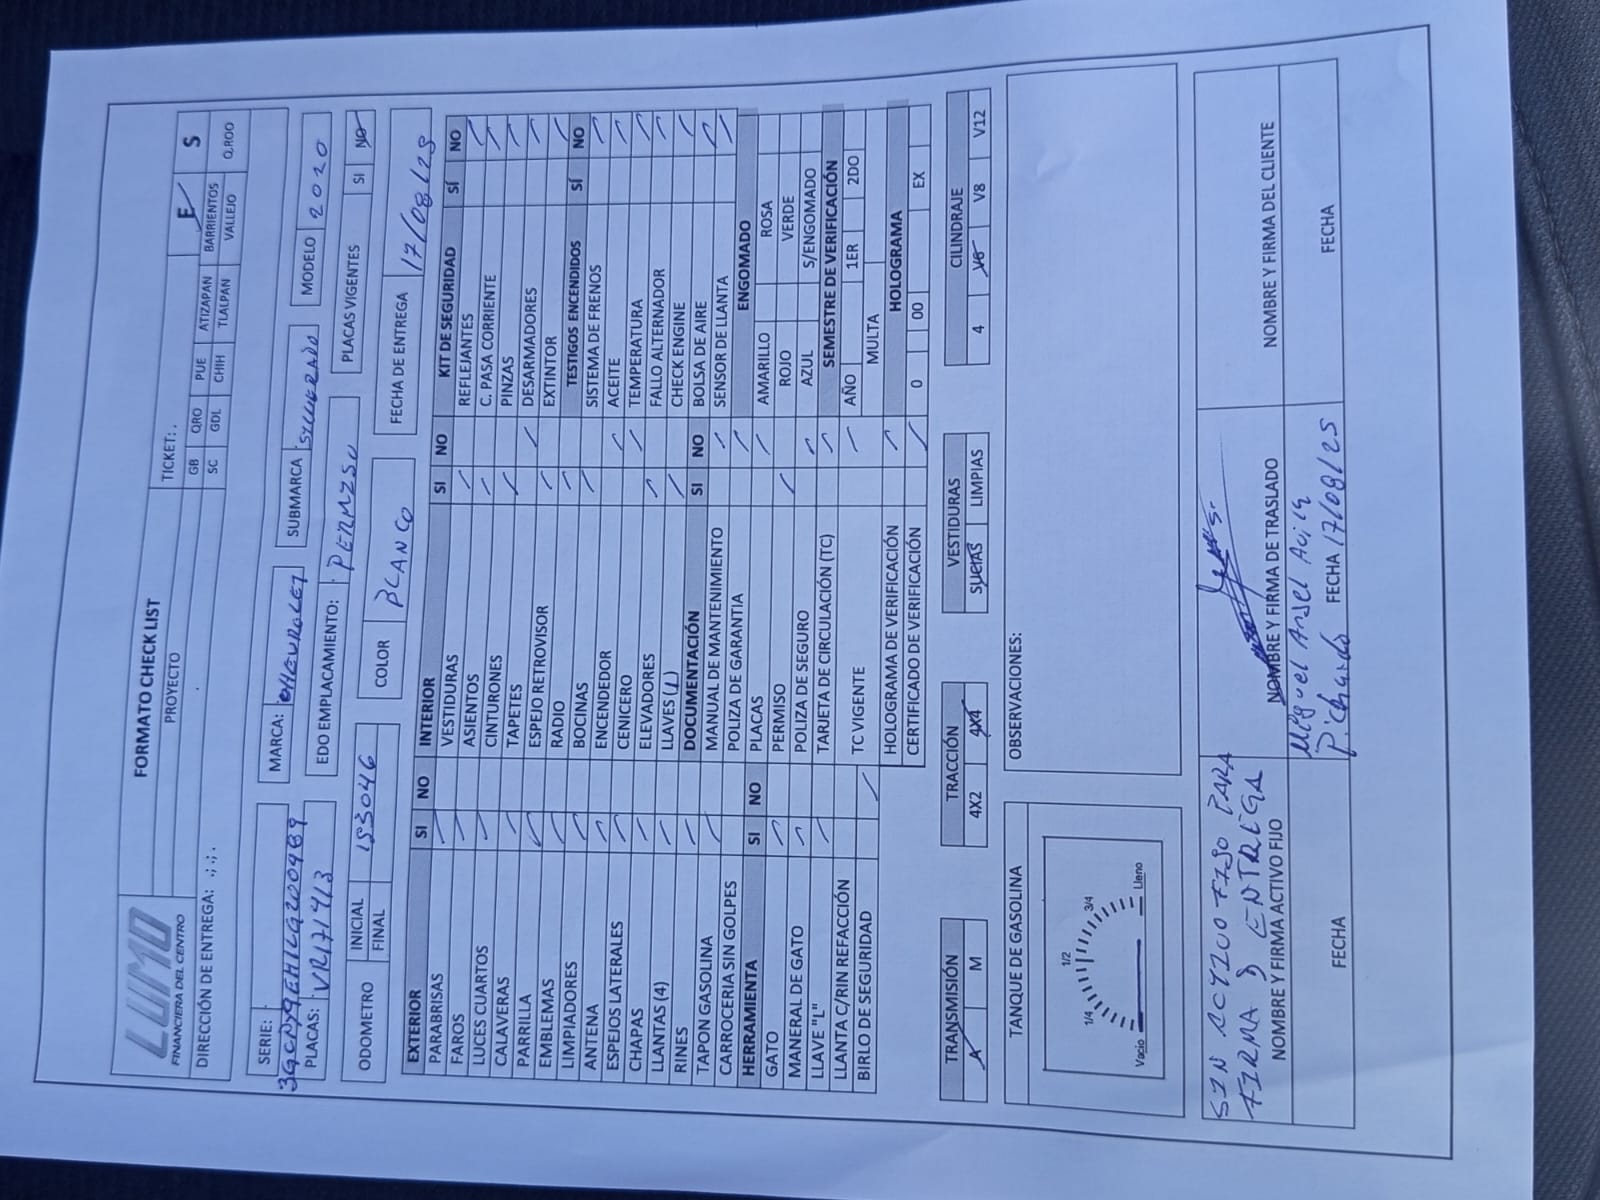 LUMO
FINANCIERA DEL CENTRO
FORMATO CHECK LIST
PROYECTO
TICKET: .
E S
DIRECCIÓN DE ENTREGA: .;.;.
GB QRO PUE ATIZAPAN BARRIENTOS
SC GDL CHIH TLALPAN VALLEJO Q.ROO
SERIE: 3GCPY9EH1LG200489
MARCA: CHEVROLET
SUBMARCA SILVERADO
MODELO 2020
PLACAS: VR171413
EDO EMPLACAMIENTO: PERMISO
PLACAS VIGENTES SI NO
ODOMETRO INICIAL 153046
FINAL
COLOR BLANCO
FECHA DE ENTREGA 17/08/25
EXTERIOR SI NO
PARABRISAS /
FAROS /
LUCES CUARTOS /
CALAVERAS /
PARRILLA /
EMBLEMAS /
LIMPIADORES /
ANTENA /
ESPEJOS LATERALES /
CHAPAS /
LLANTAS (4) /
RINES /
TAPON GASOLINA /
CARROCERIA SIN GOLPES
HERRAMIENTA SI NO
GATO /
MANERAL DE GATO /
LLAVE "L" /
LLANTA C/RIN REFACCIÓN
BIRLO DE SEGURIDAD /
INTERIOR SI NO
VESTIDURAS /
ASIENTOS /
CINTURONES /
TAPETES /
ESPEJO RETROVISOR /
RADIO /
BOCINAS /
ENCENDEDOR /
CENICERO /
ELEVADORES /
LLAVES (1) /
DOCUMENTACIÓN SI NO
MANUAL DE MANTENIMIENTO /
POLIZA DE GARANTIA /
PLACAS /
PERMISO /
POLIZA DE SEGURO /
TARJETA DE CIRCULACIÓN (TC) /
TC VIGENTE /
HOLOGRAMA DE VERIFICACIÓN /
CERTIFICADO DE VERIFICACIÓN /
KIT DE SEGURIDAD SÍ NO
REFLEJANTES /
C. PASA CORRIENTE /
PINZAS /
DESARMADORES /
EXTINTOR /
TESTIGOS ENCENDIDOS SÍ NO
SISTEMA DE FRENOS /
ACEITE /
TEMPERATURA /
FALLO ALTERNADOR /
CHECK ENGINE /
BOLSA DE AIRE /
SENSOR DE LLANTA /
ENGOMADO
AMARILLO ROSA
ROJO VERDE
AZUL S/ENGOMADO
SEMESTRE DE VERIFICACIÓN
AÑO 1ER 2DO
MULTA
HOLOGRAMA
0 00 EX
TRANSMISIÓN
A M
TRACCIÓN
4X2 4X4
VESTIDURAS
SUCIAS LIMPIAS
CILINDRAJE
4 V6 V8 V12
TANQUE DE GASOLINA
Vacio 1/4 1/2 3/4 Lleno
OBSERVACIONES:
SIN ACTIVO FIJO PARA
FIRMA Y ENTREGA
NOMBRE Y FIRMA ACTIVO FIJO
FECHA
NOMBRE Y FIRMA DE TRASLADO
Miguel Angel Avila
Pichardo FECHA 17/08/25
NOMBRE Y FIRMA DEL CLIENTE
FECHA